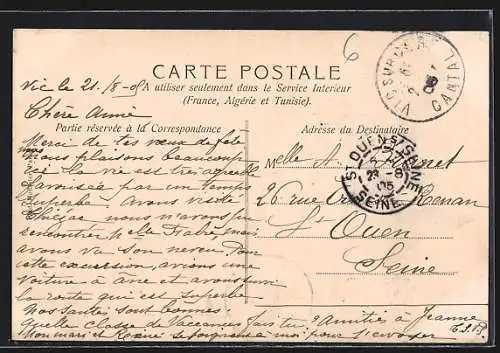 CARTE POSTALE
A utiliser seulement dans le Service Intérieur
(France, Algérie et Tunisie).
Partie réservée à la Correspondance
Adresse du Destinataire
VIC SUR CERE
CANTAL
ST OUEN S/SEINE
SEINE
6
Vic le 21/8-05
Chère Amie
Merci de tes vœux de fête
nous nous plaisons beaucoup
ici la vie est très agréable
favorisée par un temps
superbe. Avons visité
nous n'avons pu
rencontrer Melle mais
avons vu son neveu. Pour
cette excursion, avions une
voiture à âne et avons suivi
la route qui est superbe
Nos santés sont bonnes.
Quelle classe de Vaccances fais tu? Amitiés à Jeanne
Mon mari et se joignent à moi pour t'envoyer
Melle A.
26 rue Renan
St Ouen
Seine